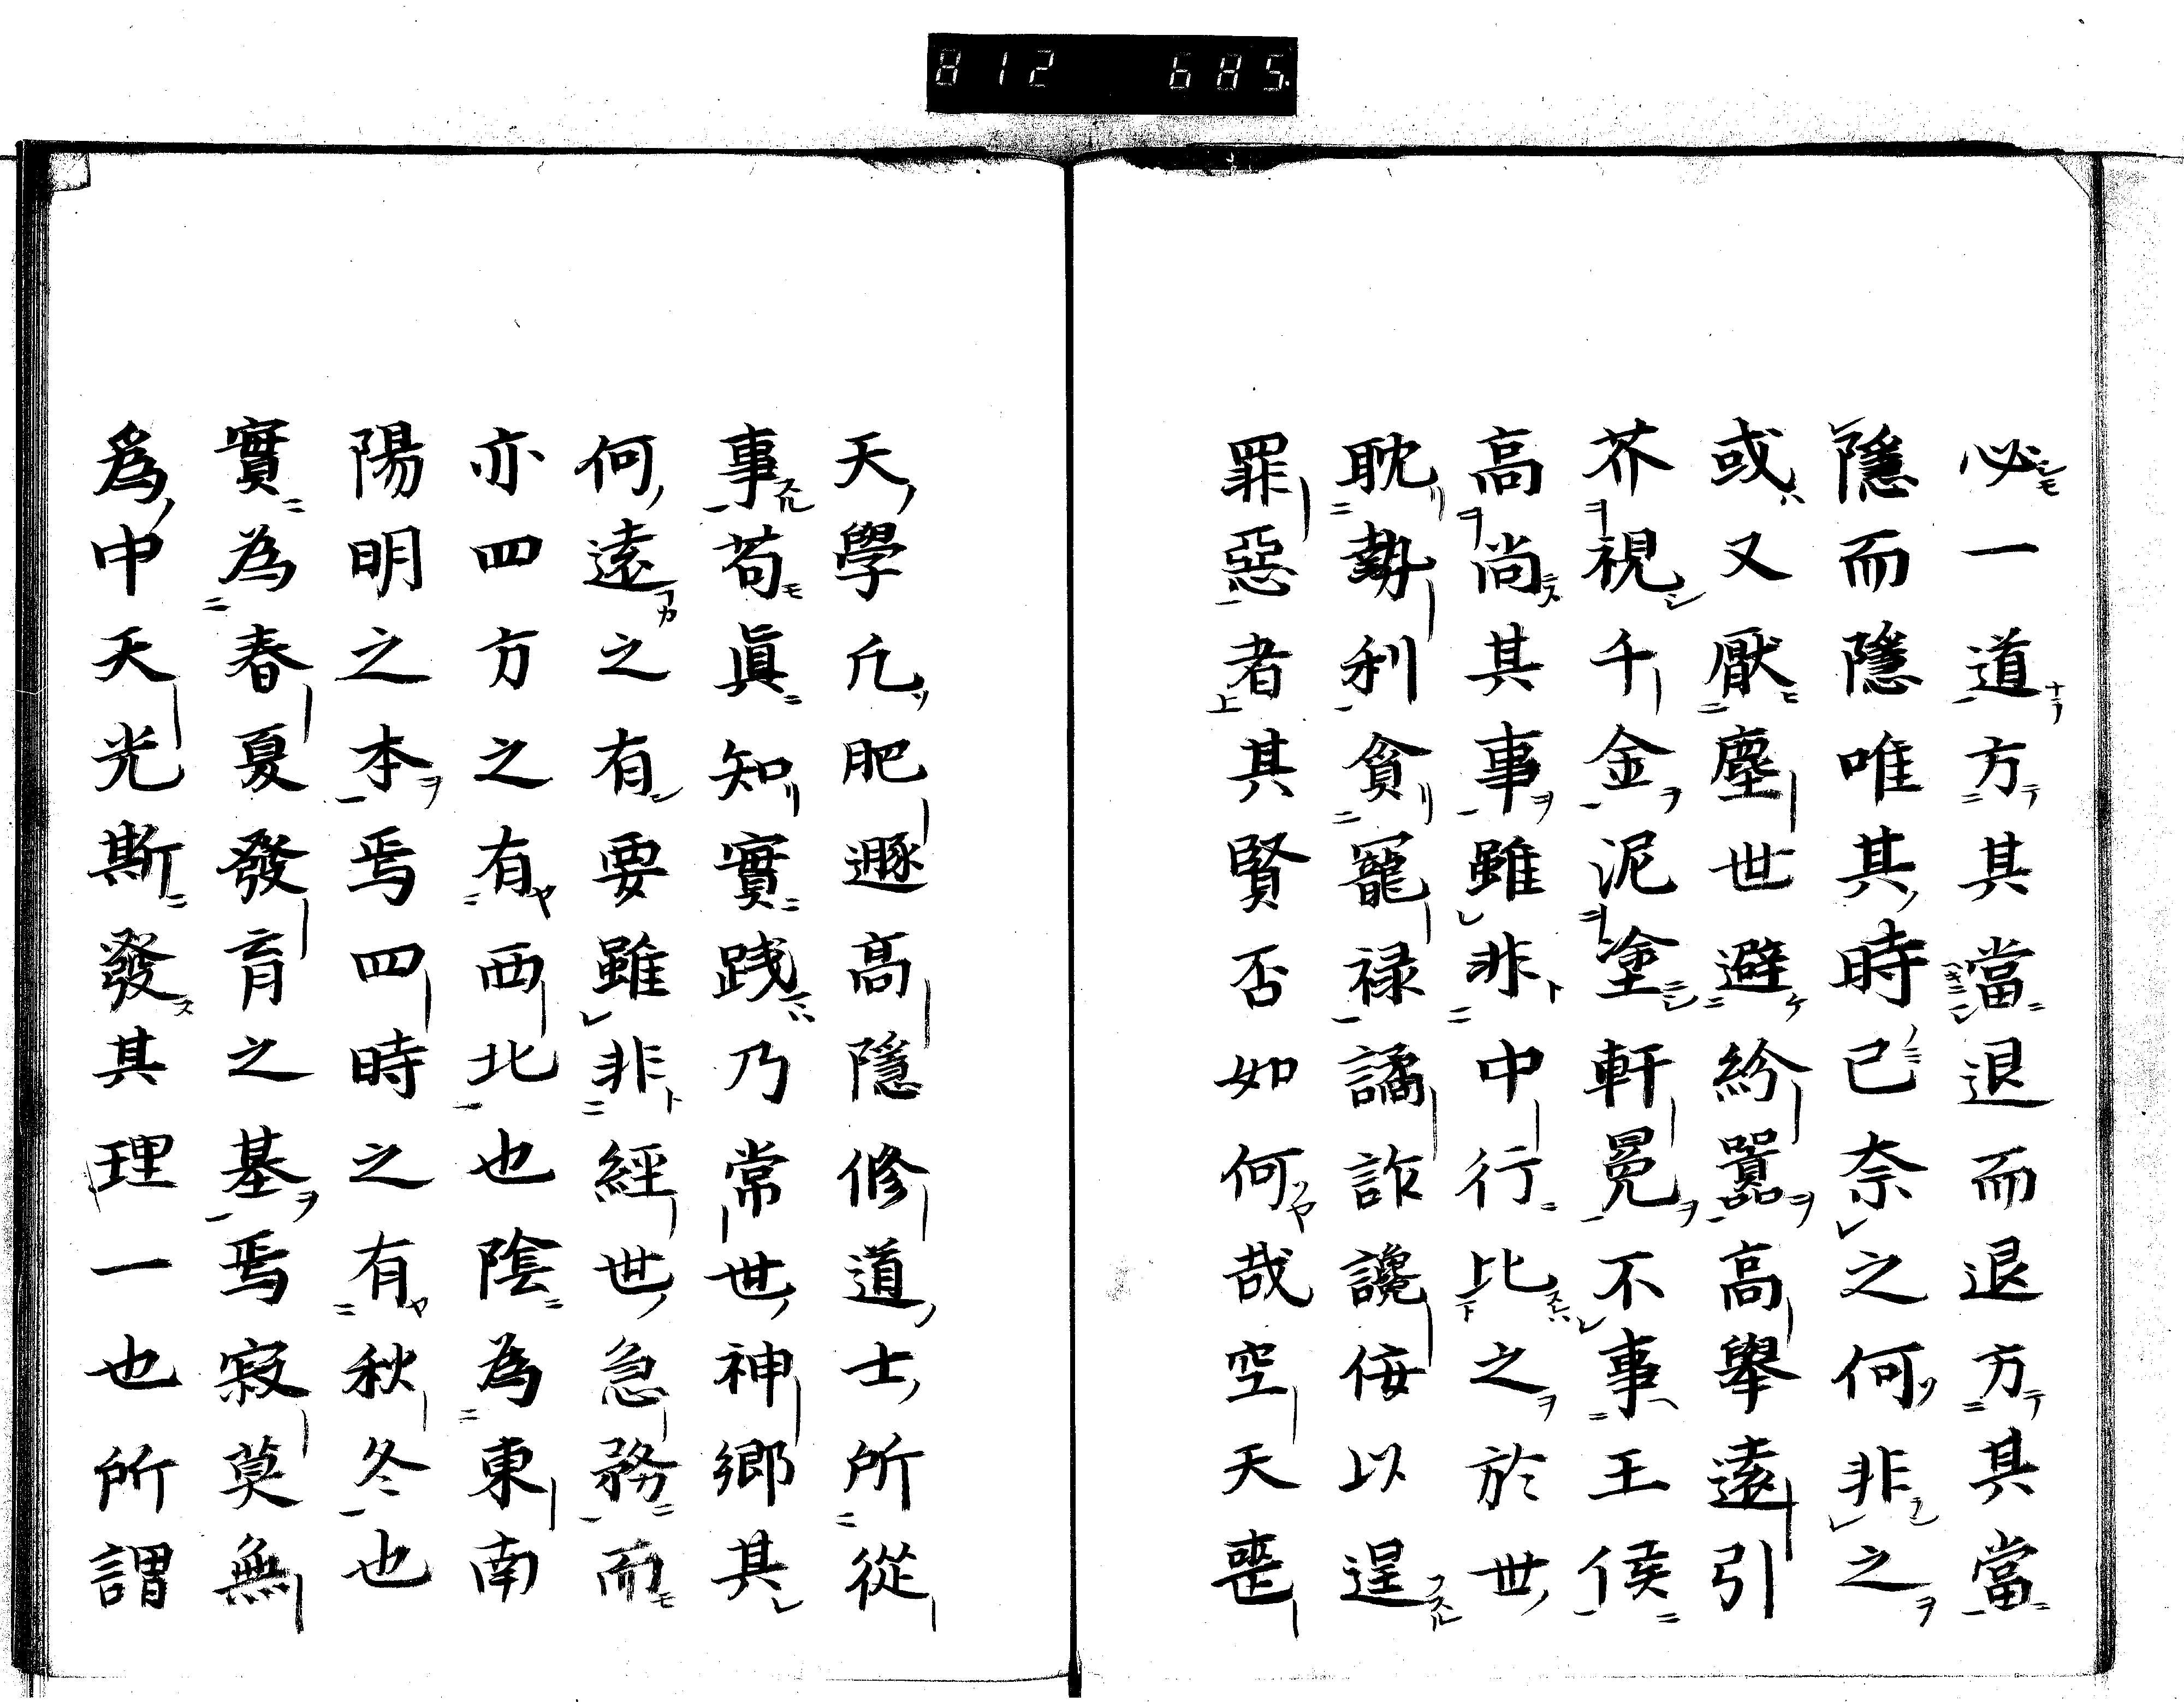 812 685
必一道方其當退而退方其當
隱而隱唯其時已奈之何非之
或又厭塵世避紛囂高舉遠引
芥視千金泥塗軒冕不事王侯
高尚其事雖非中行比之於世
耽勢利貪寵禄譎詐讒佞以逞
罪惡者其賢否如何哉空天喪
天學凢肥遯高隱修道士所從
事苟眞知實踐乃常世神鄉其
何遠之有要雖非經世急務而
亦四方之有西北也陰為東南
陽明之本焉四時之有秋冬也
實為春夏發育之基焉寂莫無
爲中天光斯發其理一也所謂